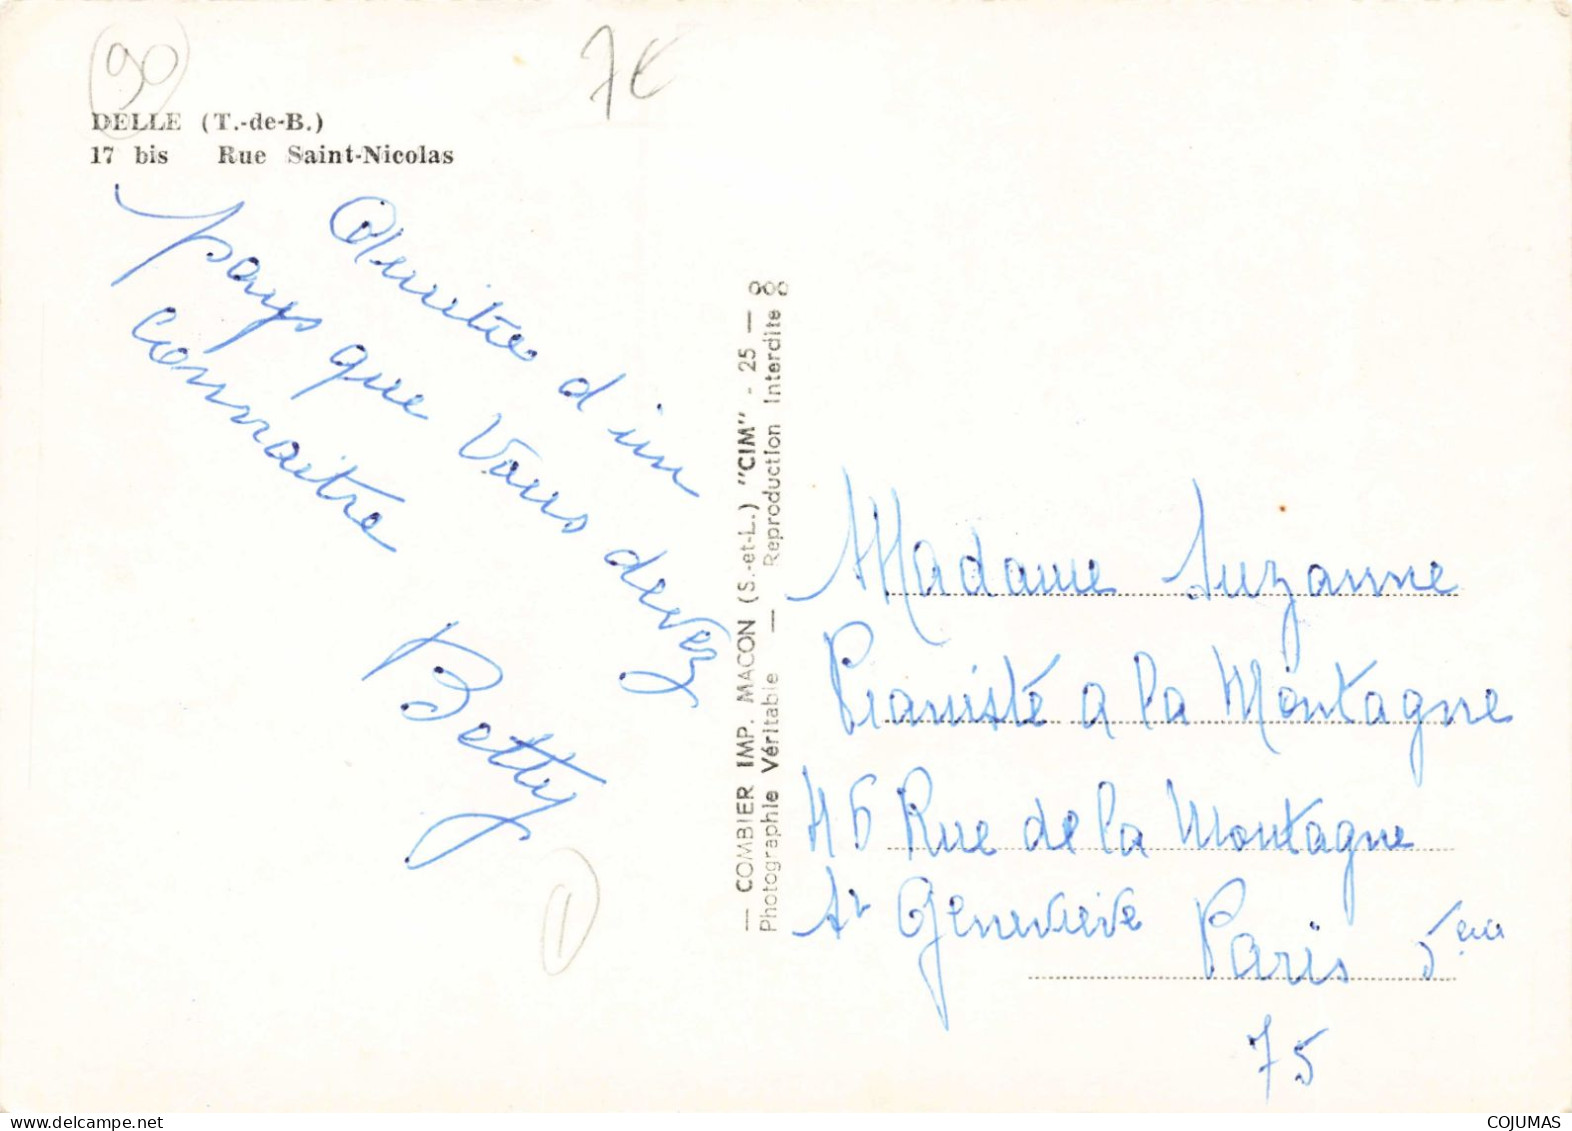 90
7€
DELLE (T.-de-B.)
17 bis Rue Saint-Nicolas
Amitié d'un
pays que Vous devez
Connaitre
Betty
1
— COMBIER IMP. MACON (S.-et-L.) "CIM" - 25 —
Photographie Véritable — Reproduction Interdite
Madame Suzanne
Pianiste a la Montagne
46 Rue de la Montagne
St Genevieve Paris 5eme
75
COJUMAS
delcampe.net